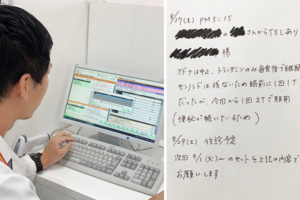 8/27(土) PM5:15
さんからTELあり
様
アドナは中止、トランサミンのみ毎食後で継続
センノシドは残なため眠前に1回1T
だったが、今回から1回2Tで服用
(便秘が続いているため)
8/29(土) 往診予定
次回 9/1(火)〜のセットを上記の内容で
お願いします。